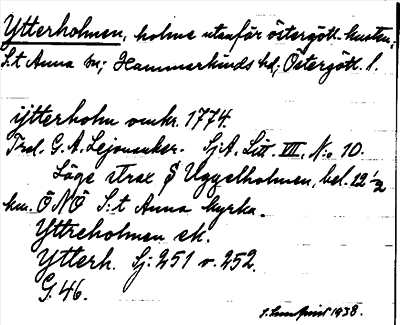 Ytterholmen, holme utanför östergötl. kusten,
S:t Anna sn; Hammarkinds hd, Östergötl. l.
ijtterholm omkr. 1774
Trol. G. A. Lejonanker. SjA. Litt. VII. N:o 10.
Läge strax S Uggelholmen, bel. 12 1/2
km. ÖNÖ S:t Anna kyrka.
Yttreholmen ek.
Ytterh. Sj: 251 v. 252.
G. 46.
1938.